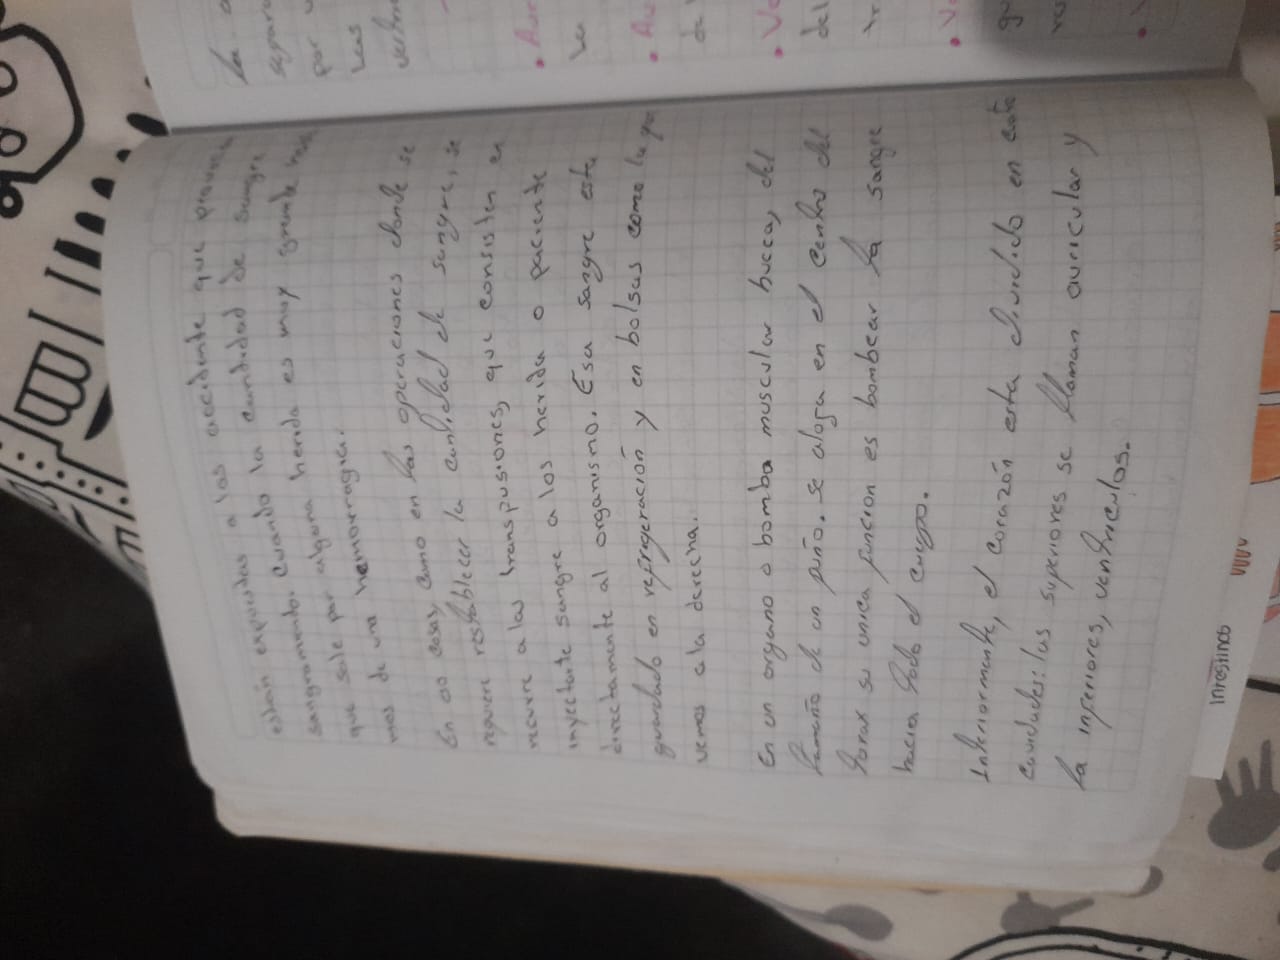 están expuestas a los accidente que provoca
sangramento. cuando la cantidad de sangre
que sale por alguna herida es muy grande
mos de una hemorragia.
En os casos, como en las operaciones donde se
requiere restablecer la cantidad de sangre, se
recurre a las transpusiones, que consisten en
inyectarte sangre a los herida o paciente
directamente al organismo. Esa sangre este
guardado en refrigeración y en bolsas como la que
vemos a la derecha.
En un organo o bomba muscular hueca, del
tamaño de un puño. se aloja en el centro del
torax su unica funcion es bombear la sangre
hacia todo el cuerpo.
Interiormente, el corazón esta dividido en cuato
cavidades: las superiores se llaman auricular y
la inferiores, ventriculos.
la
separa
por
las
• Aur
• Au
• Ve
del
• Ve
Intestinos